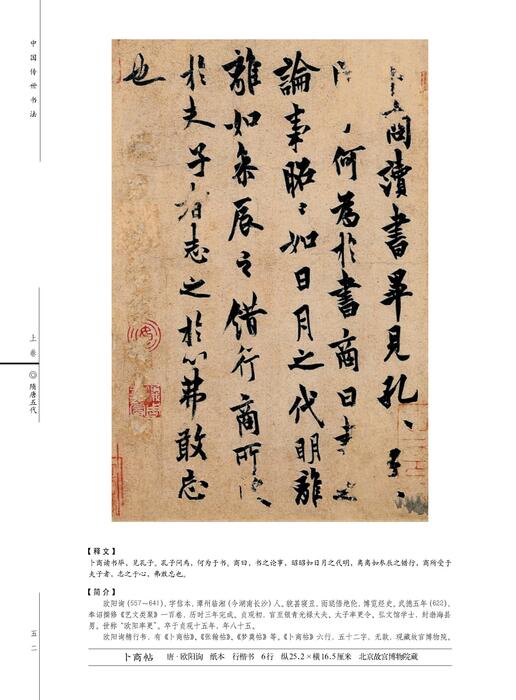 中国传世书法
上卷◎隋唐五代
五二
卜商讀書畢見孔〻子〻
何為於書商曰書之
論事昭〻如日月之代明離
離如参辰之錯行商所受
於夫子者志之於心弗敢忘
也
【释文】
卜商读书毕，见孔子。孔子问焉，何为于书。商曰，书之论事，昭昭如日月之代明，离离如参辰之错行，商所受于
夫子者，志之于心，弗敢忘也。
【简介】
欧阳询（557～641），字信本，潭州临湘（今湖南长沙）人。貌甚寝丑，而聪悟绝伦，博览经史。武德五年（622），
奉诏撰修《艺文类聚》一百卷，历时三年完成。贞观初，官至银青光禄大夫、太子率更令、弘文馆学士，封渤海县
男。世称“欧阳率更”。卒于贞观十五年，年八十五。
欧阳询精行书，有《卜商帖》、《张翰帖》、《梦奠帖》等。《卜商帖》六行，五十二字，无款，现藏故宫博物院。
卜商帖 唐·欧阳询 纸本 行楷书 6行 纵25.2×横16.5厘米 北京故宫博物院藏